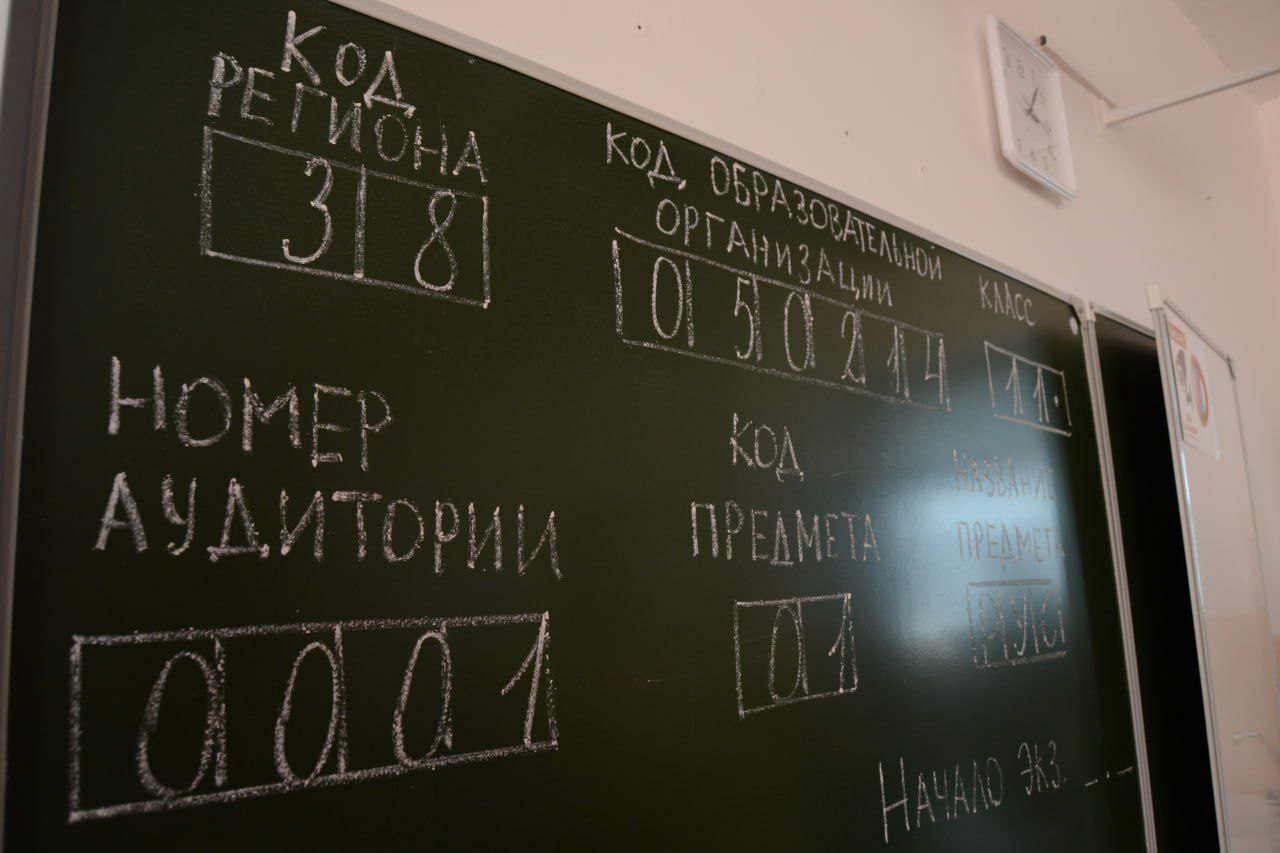 КОД
РЕГИОНА
38
КОД ОБРАЗОВАТЕЛЬНОЙ
ОРГАНИЗАЦИИ
050214
КЛАСС
11.
НОМЕР
АУДИТОРИИ
0001
КОД
ПРЕДМЕТА
01
НАЗВАНИЕ
ПРЕДМЕТА
РУС
НАЧАЛО ЭКЗ. _._